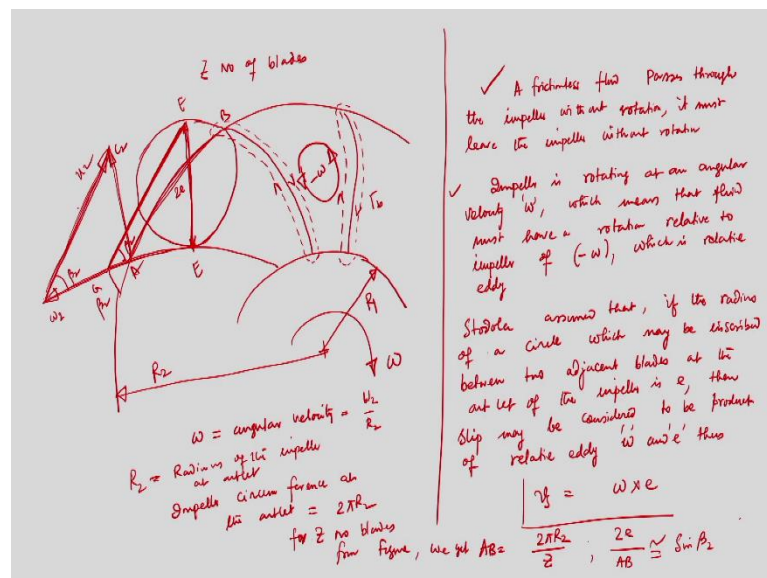 Z no of blades
F
B
u2
C2
2e
-ω
Tb
β2
G
A
β2
w2
E
R1
R2
ω
ω = angular velocity = U2/R2
R2 = Radius of the impeller
at outlet
Impeller circumference at
the outlet = 2πR2
for Z no blades
from figure, we get AB = 2πR2/Z ; 2e/AB ≃ Sin β2
✓ A frictionless fluid Passes through
the impeller without rotation, it must
leave the impeller without rotation
✓ Impeller is rotating at an angular
velocity 'ω', which means that fluid
must have a rotation relative to
impeller of (-ω), which is relative
eddy
Stodola assumed that, if the radius
of a circle which may be inscribed
between two adjacent blades at the
outlet of the impeller is e, then
slip may be considered to be product
of relative eddy 'ω' and 'e' thus
= ω × e